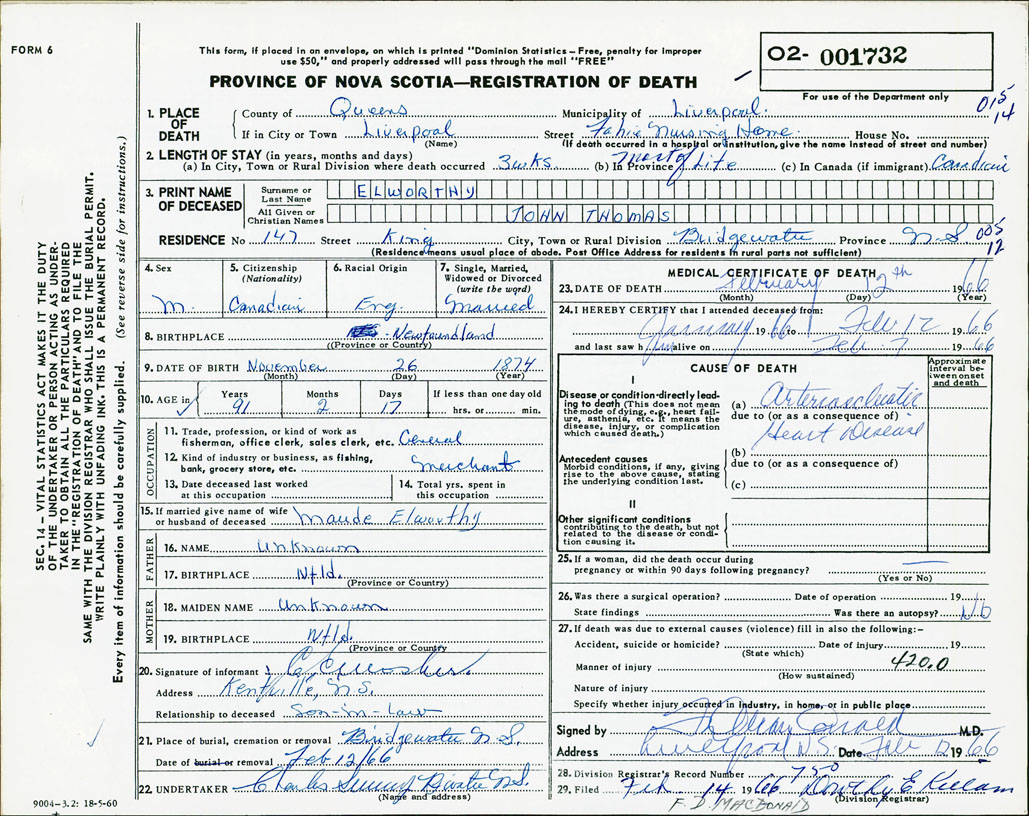 FORM 6
This form, if placed in an envelope, on which is printed "Dominion Statistics – Free, penalty for improper
use $50," and properly addressed will pass through the mail "FREE"
PROVINCE OF NOVA SCOTIA—REGISTRATION OF DEATH
02- 001732
For use of the Department only
015
14
1. PLACE OF DEATH
County of Queens Municipality of Liverpool.
If in City or Town Liverpool Street Nursing Home. House No.
(Name) (If death occurred in a hospital or institution, give the name instead of street and number)
2. LENGTH OF STAY (in years, months and days)
(a) In City, Town or Rural Division where death occurred 3 wks (b) In Province Most of Life (c) In Canada (if immigrant) Canadian
3. PRINT NAME OF DECEASED
Surname or Last Name ELWORTHY
All Given or Christian Names JOHN THOMAS
RESIDENCE No 147 Street King City, Town or Rural Division Bridgewater Province N S
005
12
(Residence means usual place of abode. Post Office Address for residents in rural parts not sufficient)
4. Sex M.
5. Citizenship (Nationality) Canadian
6. Racial Origin Eng.
7. Single, Married, Widowed or Divorced (write the word) Married
8. BIRTHPLACE - Newfoundland
(Province or Country)
9. DATE OF BIRTH November 26 1874
(Month) (Day) (Year)
10. AGE in Years 91 Months 2 Days 17 If less than one day old hrs. or min.
OCCUPATION
11. Trade, profession, or kind of work as
fisherman, office clerk, sales clerk, etc. General
12. Kind of industry or business, as fishing,
bank, grocery store, etc. Merchant
13. Date deceased last worked
at this occupation
14. Total yrs. spent in
this occupation
15. If married give name of wife
or husband of deceased Maude Elworthy
FATHER
16. NAME Unknown
17. BIRTHPLACE Nfld.
(Province or Country)
MOTHER
18. MAIDEN NAME Unknown
19. BIRTHPLACE Nfld.
(Province or Country)
20. Signature of informant
Address Kentville, N.S.
Relationship to deceased Son-in-law
21. Place of burial, cremation or removal Bridgewater N.S.
Date of burial or removal Feb 12/66
22. UNDERTAKER Charles N.S.
(Name and address)
MEDICAL CERTIFICATE OF DEATH
23. DATE OF DEATH February 12th 1966
(Month) (Day) (Year)
24. I HEREBY CERTIFY that I attended deceased from:
January 1966 to Feb 12 1966
and last saw him alive on Feb 7 1966
CAUSE OF DEATH
Approximate interval between onset and death
I
Disease or condition directly leading to death (This does not mean the mode of dying, e.g., heart failure, asthenia, etc. It means the disease, injury, or complication which caused death.)
(a) Arteriosclerotic
due to (or as a consequence of)
Heart Disease
Antecedent causes
Morbid conditions, if any, giving rise to the above cause, stating the underlying condition last.
(b)
due to (or as a consequence of)
(c)
II
Other significant conditions
contributing to the death, but not related to the disease or condition causing it.
25. If a woman, did the death occur during
pregnancy or within 90 days following pregnancy? —
(Yes or No)
26. Was there a surgical operation? Date of operation 19
State findings Was there an autopsy? No
27. If death was due to external causes (violence) fill in also the following:–
Accident, suicide or homicide? Date of injury 19
(State which)
Manner of injury 420.0
(How sustained)
Nature of injury
Specify whether injury occurred in industry, in home, or in public place
Signed by M.D.
Address Liverpool N.S. Date Feb 12 1966
28. Division Registrar's Record Number 750
29. Filed Feb. 14 1966 Dorothy E
(Division Registrar)
F. D. MACDONALD
SEC. 14 – VITAL STATISTICS ACT MAKES IT THE DUTY
OF THE UNDERTAKER OR PERSON ACTING AS UNDER-
TAKER TO OBTAIN ALL THE PARTICULARS REQUIRED
IN THE "REGISTRATION OF DEATH" AND TO FILE THE
SAME WITH THE DIVISION REGISTRAR WHO SHALL ISSUE THE BURIAL PERMIT.
WRITE PLAINLY WITH UNFADING INK. THIS IS A PERMANENT RECORD.
Every item of information should be carefully supplied. (See reverse side for instructions.)
9004-3.2: 18-5-60